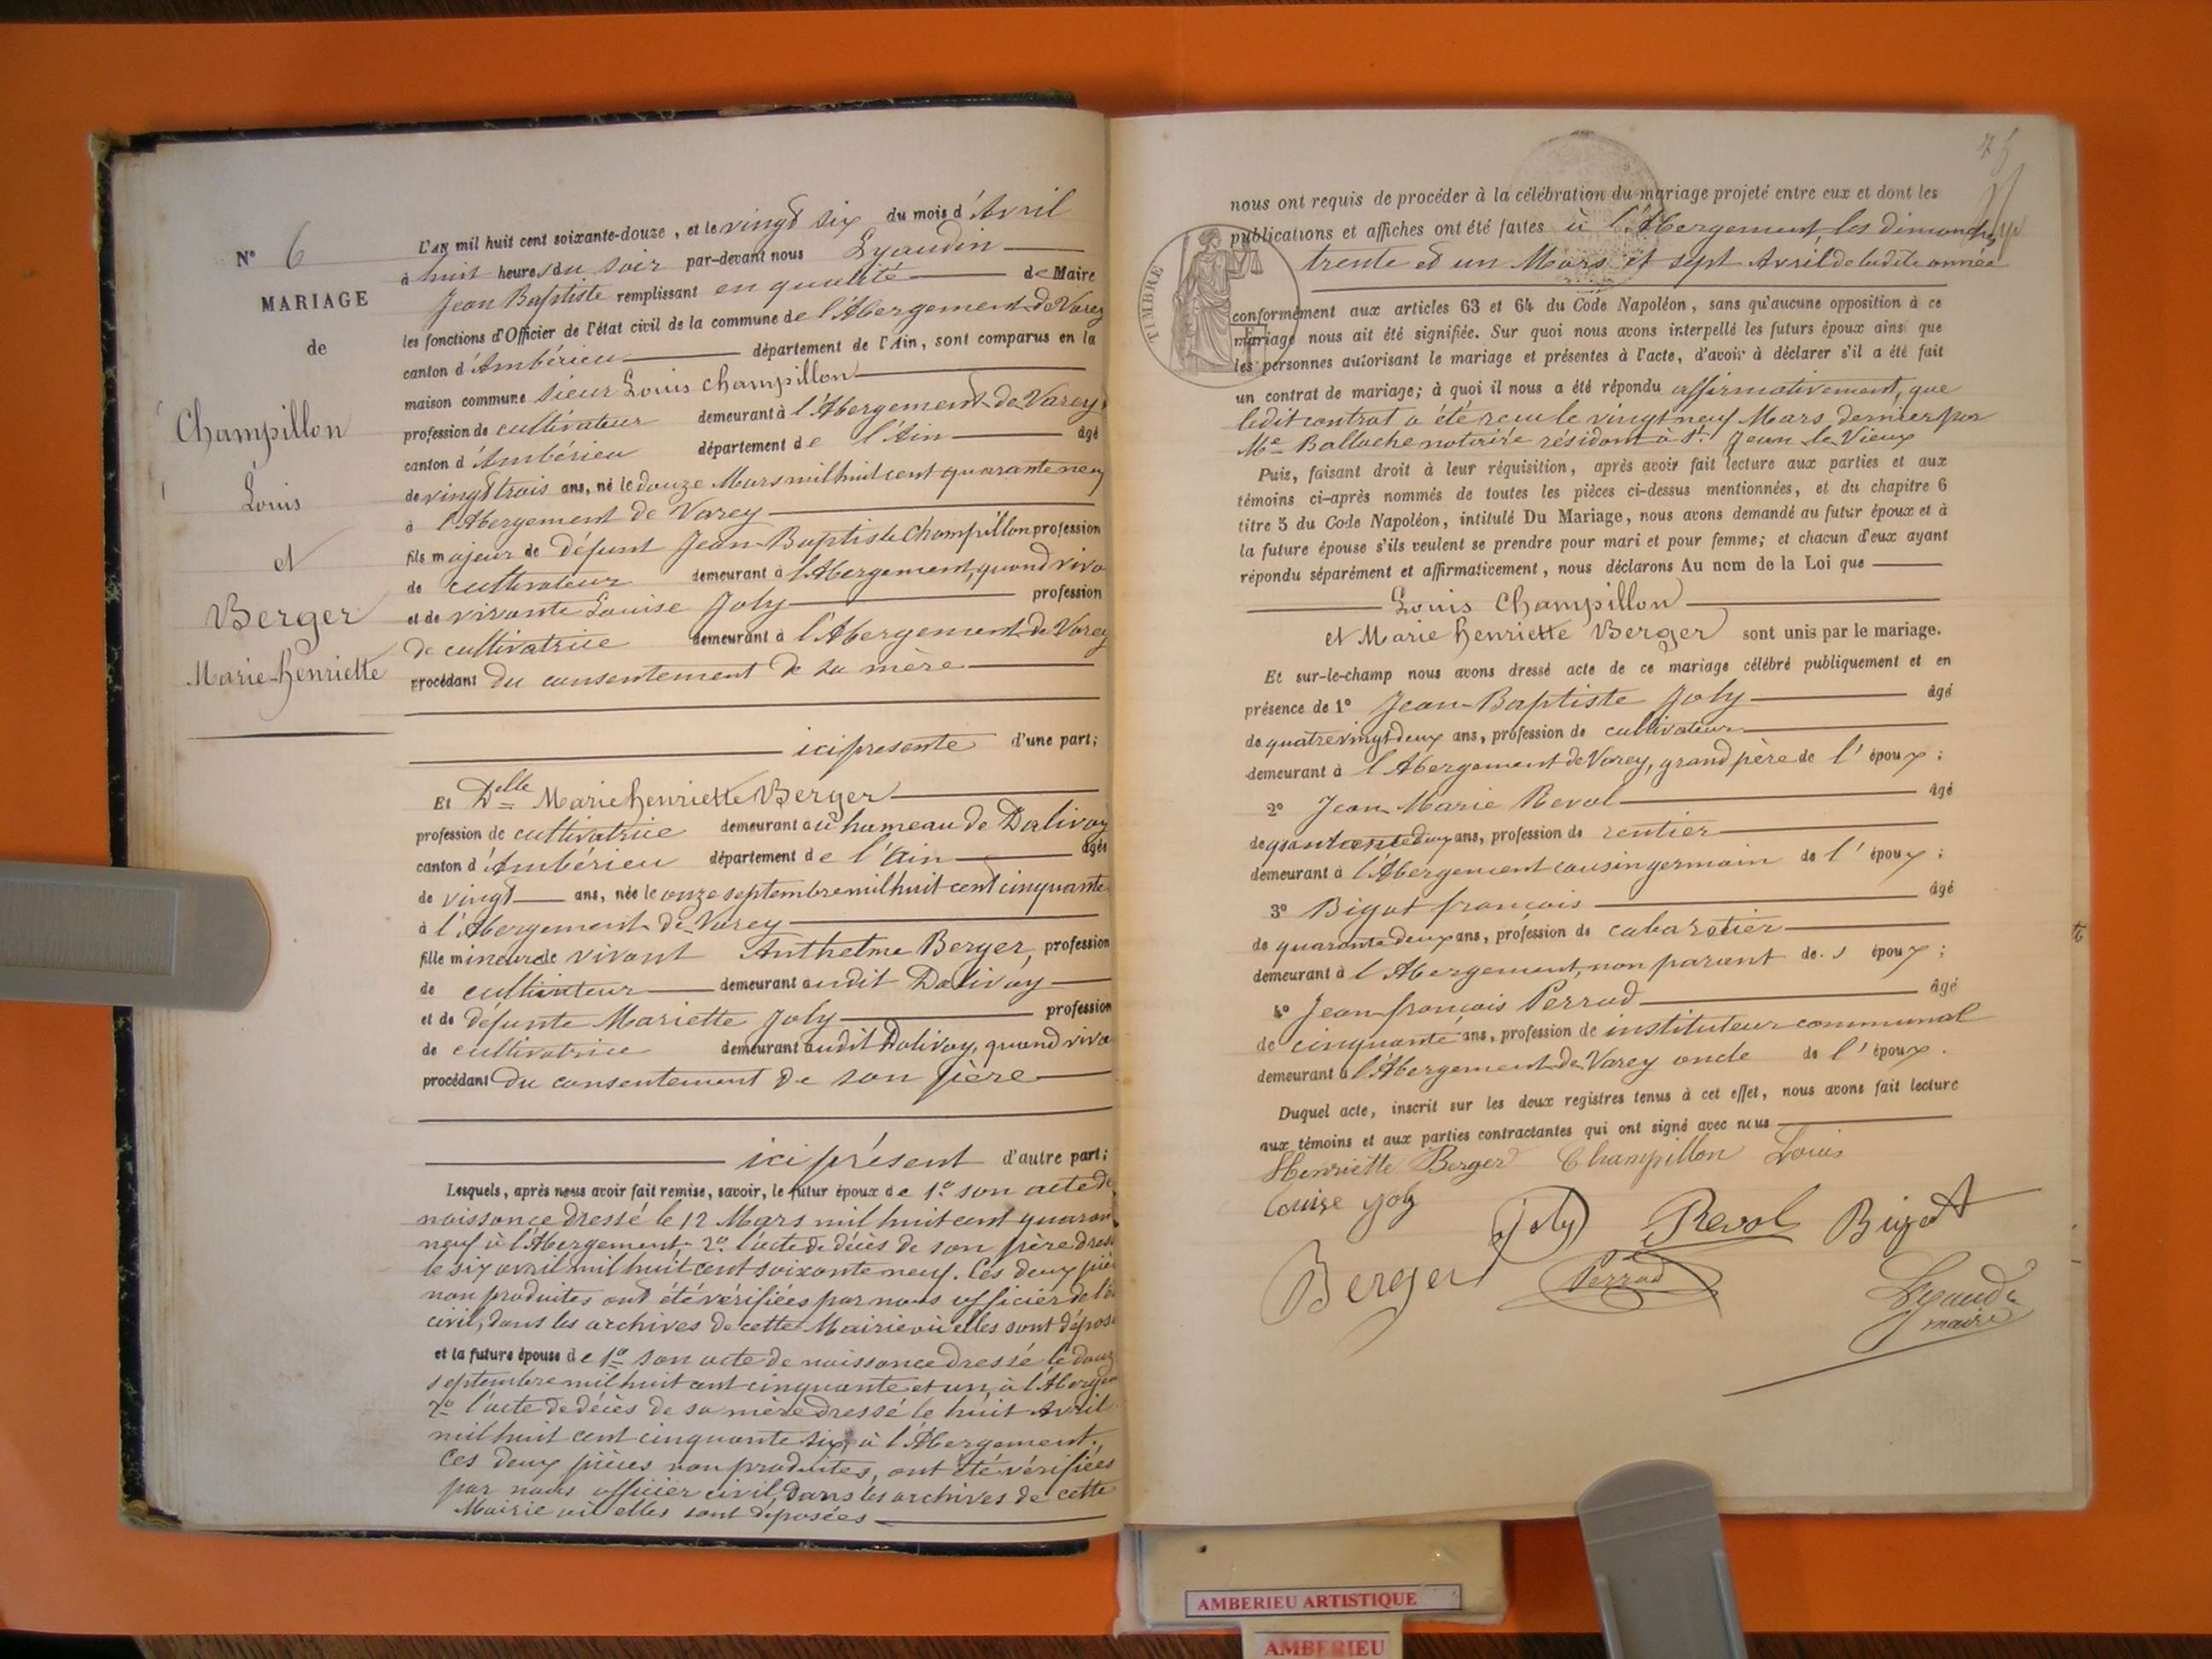 N° 6
MARIAGE
de
Champillon
Louis
et
Berger
Marie-henriette
L'AN mil huit cent soixante-douze, et le vingt six du mois d'Avril
à huit heures du soir par-devant nous Lyaudin
Jean Baptiste remplissant en qualité de Maire
les fonctions d'Officier de l'état civil de la commune de l'Abergement-de Varey
canton d'Ambérieu département de l'Ain, sont comparus en la
maison commune sieur Louis Champillon
profession de cultivateur demeurant à l'Abergement-de-Varey
canton d'Ambérieu département de l'Ain âgé
de vingt trois ans, né le douze Mars mil huit cent quarante neuf
à l'Abergement de Varey
fils majeur de défunt Jean-Baptiste Champillon profession
de cultivateur demeurant à l'Abergement, quand viva
et de vivante Louise Joly profession
de cultivatrice demeurant à l'Abergement-de Varey
procédant du consentement de sa mère
ici présente d'une part;
Et Delle Marie henriette Berger
profession de cultivatrice demeurant au hameau de Dalivoy
canton d'Ambérieu département de l'Ain âgée
de vingt ans, née le onze septembre mil huit cent cinquante
à l'Abergement-de-Varey
fille mineure de vivant Anthelme Berger, profession
de cultivateur demeurant audit Dalivoy
et de défunte Mariette Joly profession
de cultivatrice demeurant audit Dalivoy, quand viva
procédant du consentement de son père
ici présent d'autre part;
Lesquels, après nous avoir fait remise, savoir, le futur époux de 1° son acte de
naissance dressé le 12 Mars mil huit cent quaran
neuf à l'Abergement; 2° l'acte de décès de son père dres
le six avril mil huit cent soixante neuf. Ces deux piè
non produites ont été vérifiées par nous officier de l'é
civil, dans les archives de cette Mairie où elles sont dépos
et la future épouse de 1° son acte de naissance dressé le douz
septembre mil huit cent cinquante et un, à l'Abergem
2° l'acte de décès de sa mère dressé le huit Avril
mil huit cent cinquante six, à l'Abergement.
Ces deux pièces non produites, ont été vérifiées
par nous officier civil, dans les archives de cette
Mairie où elles sont déposées
nous ont requis de procéder à la célébration du mariage projeté entre eux et dont les
publications et affiches ont été faites à l'Abergement les dimanches
trente et un Mars et sept Avril de ladite année
TIMBRE
conformément aux articles 63 et 64 du Code Napoléon, sans qu'aucune opposition à ce
mariage nous ait été signifiée. Sur quoi nous avons interpellé les futurs époux ainsi que
les personnes autorisant le mariage et présentes à l'acte, d'avoir à déclarer s'il a été fait
un contrat de mariage; à quoi il nous a été répondu affirmativement, que
ledit contrat a été reçu le vingt neuf Mars dernier par
Me Ballache notaire résidant à St. Jean le Vieux
Puis, faisant droit à leur réquisition, après avoir fait lecture aux parties et aux
témoins ci-après nommés de toutes les pièces ci-dessus mentionnées, et du chapitre 6
titre 5 du Code Napoléon, intitulé Du Mariage, nous avons demandé au futur époux et à
la future épouse s'ils veulent se prendre pour mari et pour femme; et chacun d'eux ayant
répondu séparément et affirmativement, nous déclarons Au nom de la Loi que
Louis Champillon
et Marie henriette Berger sont unis par le mariage.
Et sur-le-champ nous avons dressé acte de ce mariage célébré publiquement et en
présence de 1° Jean-Baptiste Joly âgé
de quatrevingt deux ans, profession de cultivateur
demeurant à l'Abergement de Varey, grand père de l'époux;
2° Jean-Marie Revol âgé
ans, profession de rentier
demeurant à l'Abergement cousin germain de l'époux;
3° Bigot françois âgé
de quarante deux ans, profession de cabaretier
demeurant à l'Abergement, non parent des époux;
4° Jean françois Perrod âgé
de cinquante ans, profession de instituteur communal
demeurant à l'Abergement-de-Varey oncle de l'époux.
Duquel acte, inscrit sur les deux registres tenus à cet effet, nous avons fait lecture
aux témoins et aux parties contractantes qui ont signé avec nous
Henriette Berger Champillon Louis
Louise Joly
Joly Revol Bigot
Berger Perrod
Lyaudin
maire
AMBERIEU ARTISTIQUE
AMBERIEU